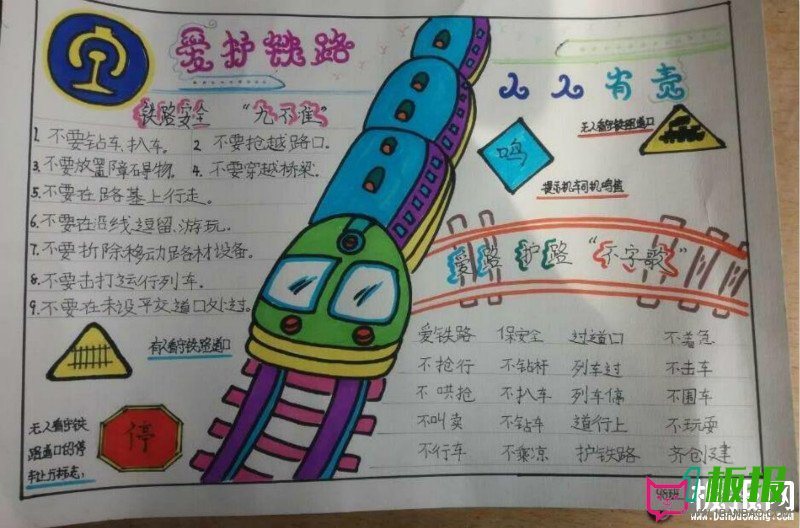 爱护铁路
人人有责
铁路安全 “九不准”
1. 不要钻车、扒车。 2 不要抢越路口。
3. 不要放置障碍物。 4. 不要穿越桥梁。
5. 不要在路基上行走。
6. 不要在沿线逗留、游玩。
7. 不要拆除移动路材设备。
8. 不要击打运行列车。
9. 不要在未设平交道口处过。
有人看守铁路道口
无人看守铁
路道口的停
车让行标志
停
鸣
提示机车司机鸣笛
无人看守铁路道口
爱路 护路 “不字歌”
爱铁路 保安全 过道口 不着急
不抢行 不钻杆 列车过 不击车
不哄抢 不扒车 列车停 不围车
不叫卖 不钻车 道行上 不玩耍
不行车 不乘凉 护铁路 齐创建
板报